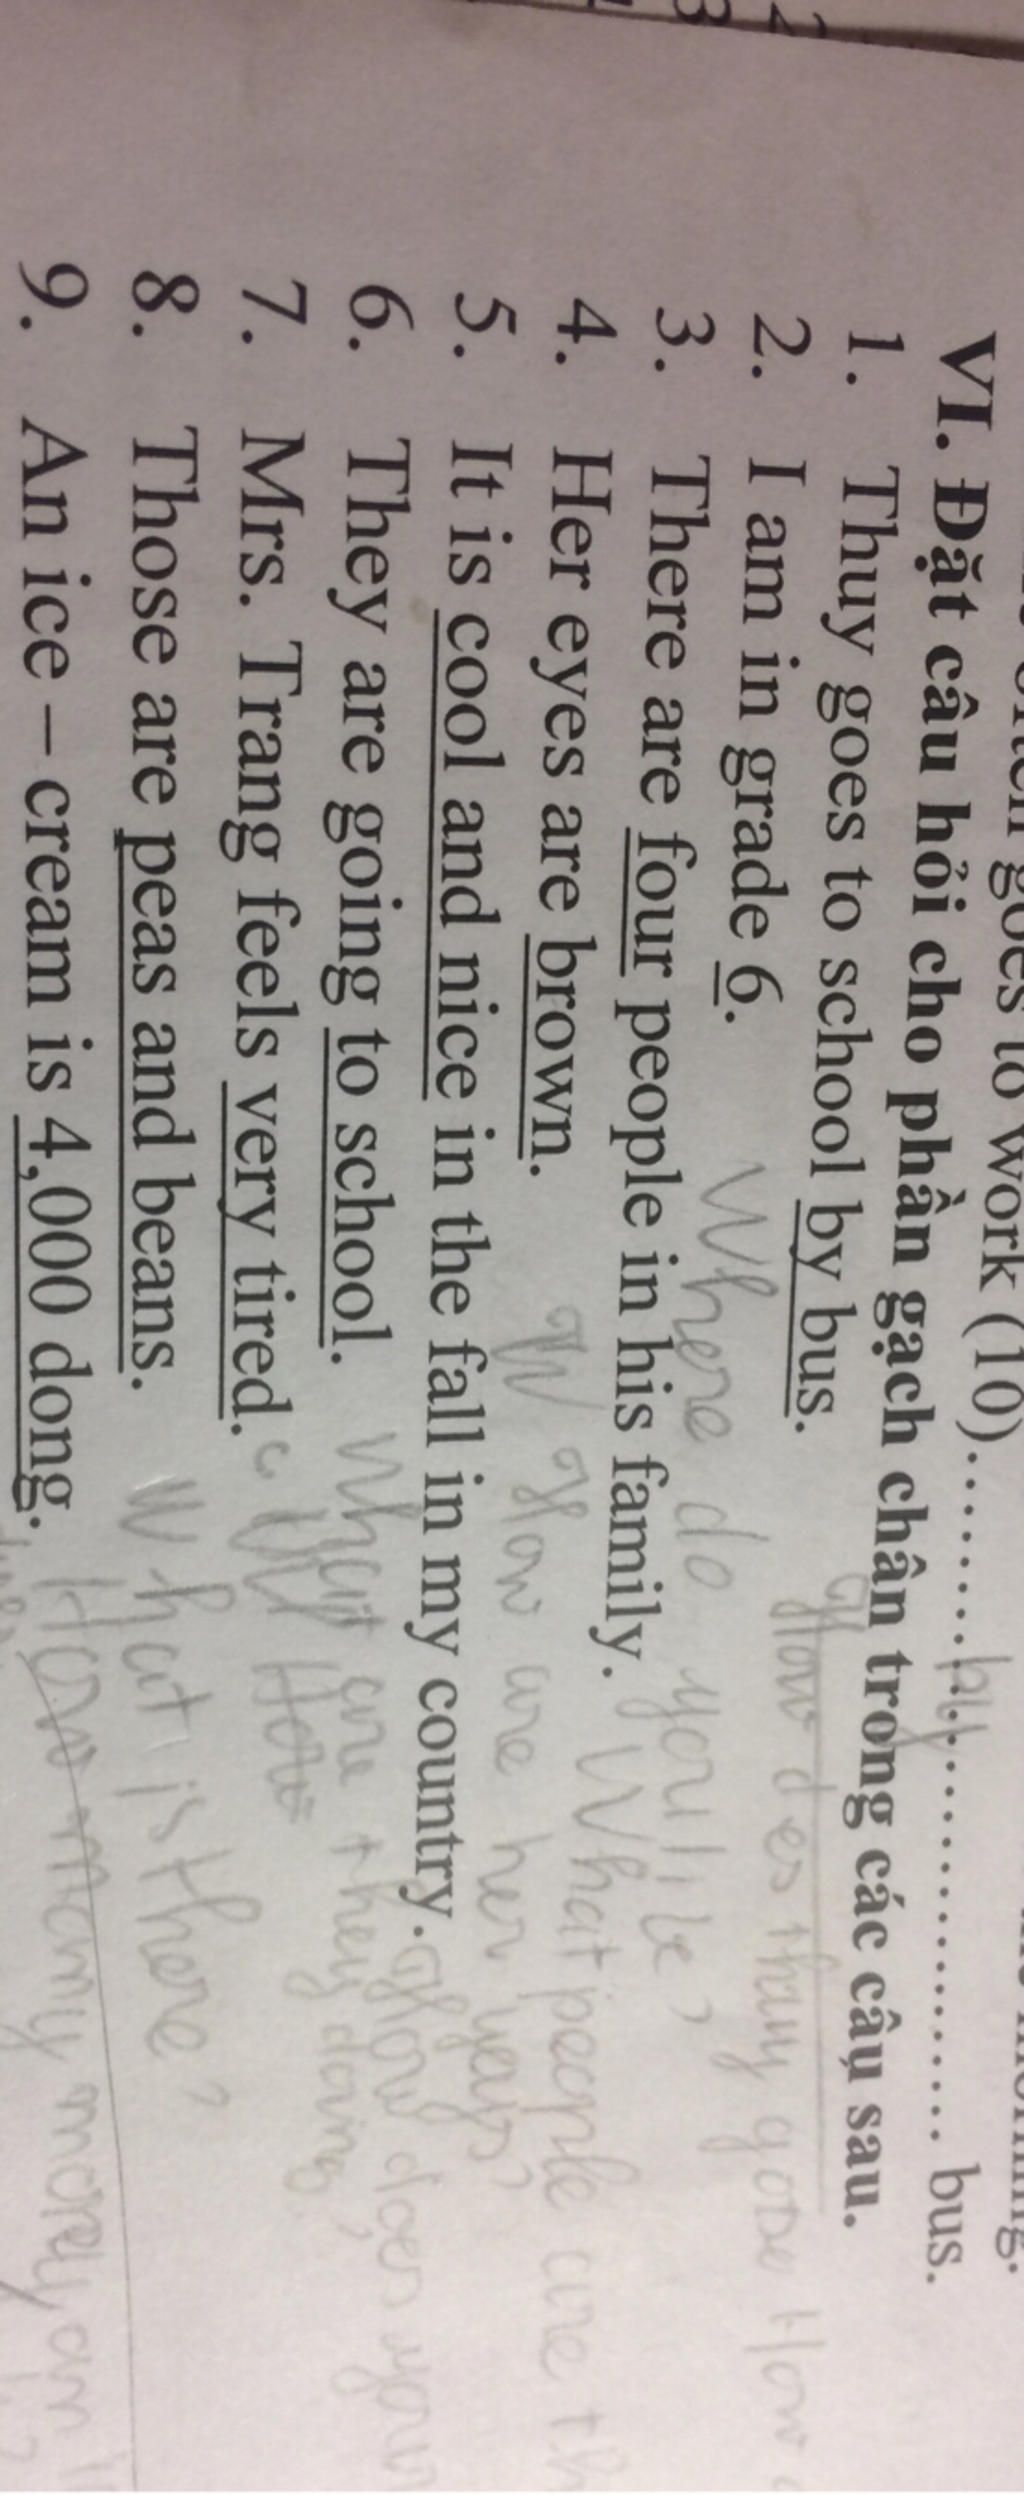 goes to work (10)........................ bus.
by
VI. Đặt câu hỏi cho phần gạch chân trong các câu sau.
1. Thuy goes to school by bus.
How
2. I am in grade 6.
Where do you
3. There are four people in his family. What people are
4. Her eyes are brown.
W How are her
5. It is cool and nice in the fall in my country. How does your
6. They are going to school. What are they doing
7. Mrs. Trang feels very tired. How
8. Those are peas and beans. What is there?
9. An ice – cream is 4,000 dong. How many